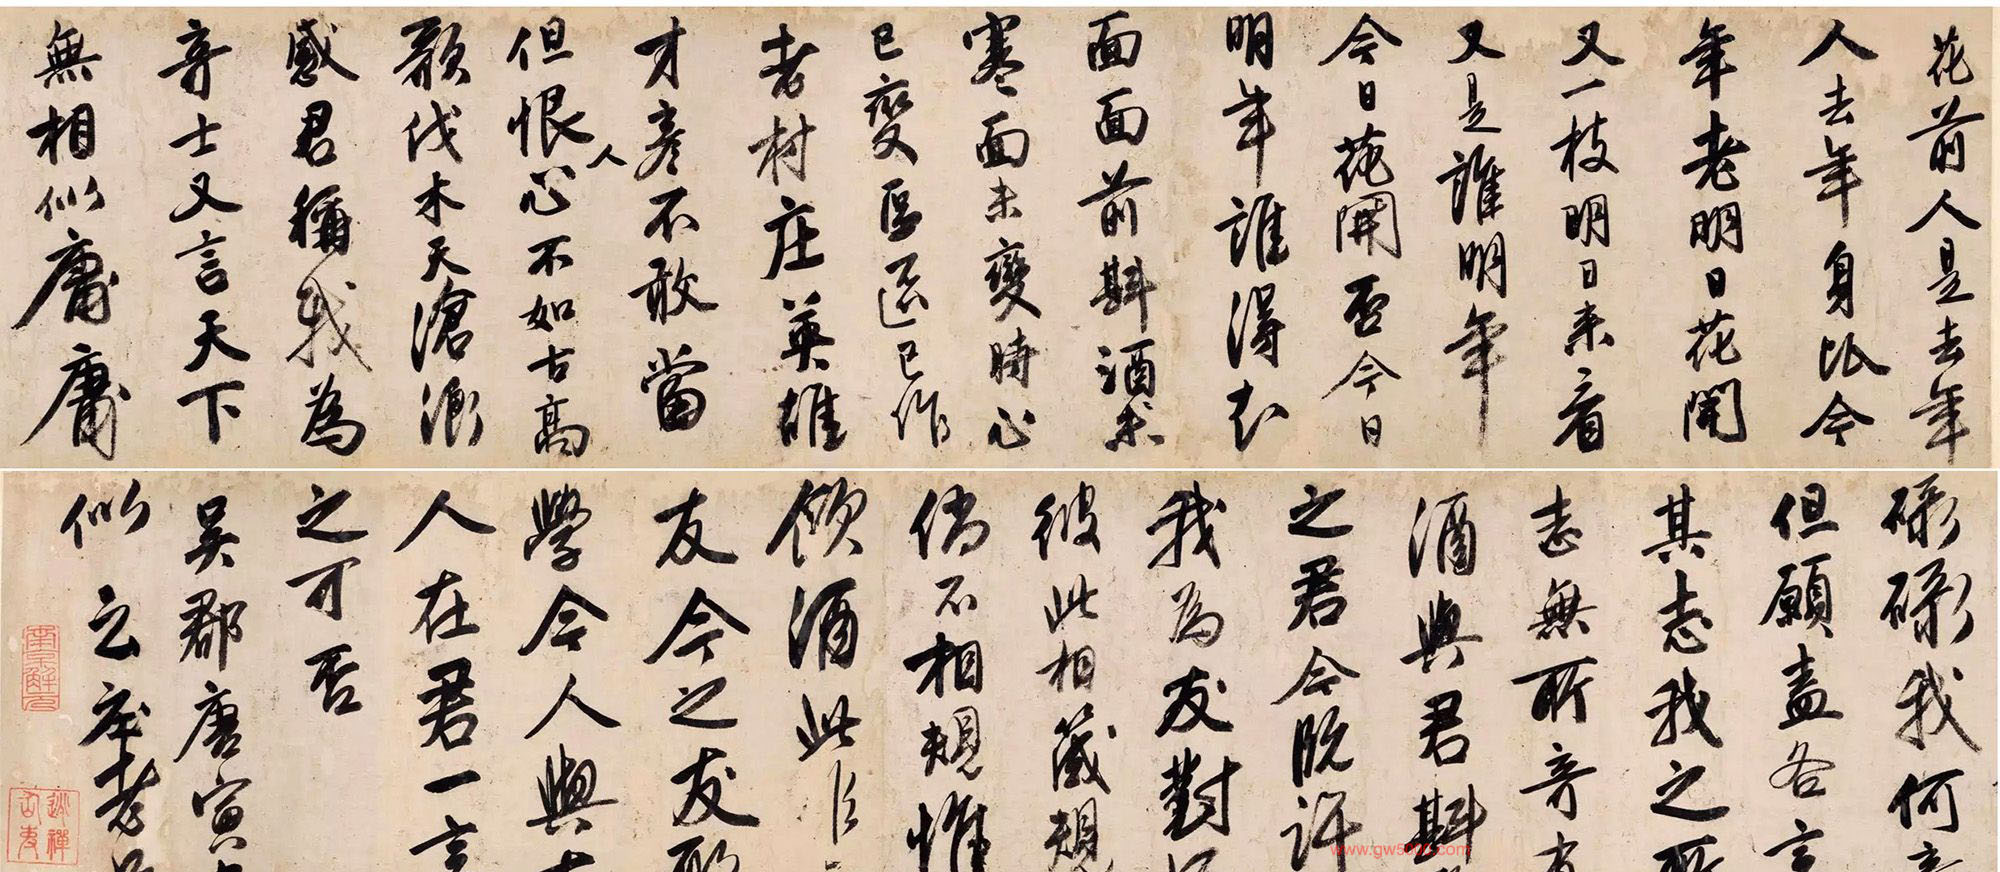 花前人是去年
人去年身比今
年老明日花開
又一枝明日来看
又是誰明年
今日花開否今日
明年誰得知
面面前斟酒未
寒面未變時心
已變區區已作
老村庄英雄
才彥不敢當
但恨人心不如古高
歌伐木天滄浪
感君稱我為
奇士又言天下
無相似庸庸
碌碌我何奇
但願盡各言
其志我之所
志無所奇有
酒與君斟
之君今既許
我為友對
彼此相箴規
倘不相規惟
飲酒此
友今之友
學今人與
人在君一言
之可否
吴郡唐寅
似之
老
南京解元
逃禪仙吏